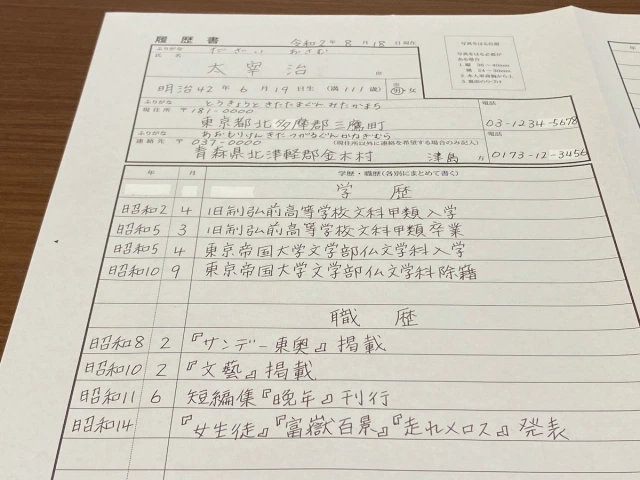 履歴書 令和2年8月18日現在
ふりがな だざい おさむ
氏名 太宰 治 印
明治42年6月19日生(満111歳) 男・女
ふりがな とうきょうときたたまぐんみたかまち 電話
現住所 〒181-0000
東京都北多摩郡三鷹町 03-1234-5678
ふりがな あおもりけんきたつがるぐんかなぎむら 電話
連絡先 〒037-0000 (現住所以外に連絡を希望する場合のみ記入)
青森県北津軽郡金木村 津島方 0173-12-3456
写真をはる位置
写真をはる必要が
ある場合
1. 縦 36~40mm
横 24~30mm
2. 本人単身胸から上
3. 裏面のりづけ
年 月 学歴・職歴(各別にまとめて書く)
学歴
昭和2 4 旧制弘前高等学校文科甲類入学
昭和5 3 旧制弘前高等学校文科甲類卒業
昭和5 4 東京帝国大学文学部仏文学科入学
昭和10 9 東京帝国大学文学部仏文学科除籍
職歴
昭和8 2 『サンデー東奥』掲載
昭和10 2 『文藝』掲載
昭和11 6 短編集『晩年』刊行
昭和14 『女生徒』『富嶽百景』『走れメロス』発表